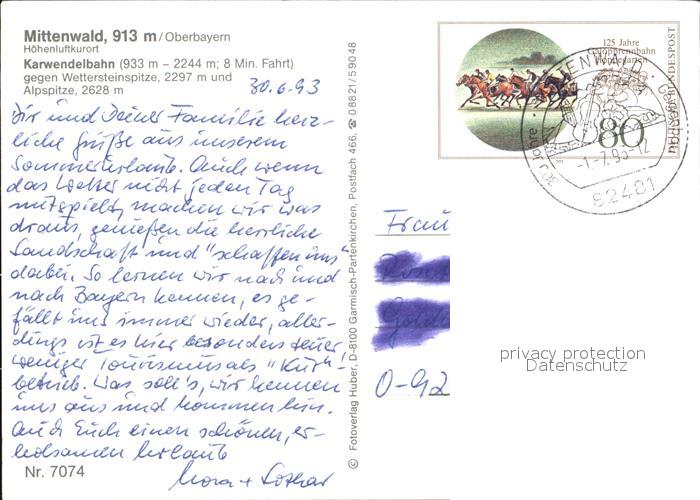 Mittenwald, 913 m/Oberbayern
Höhenluftkurort
Karwendelbahn (933 m – 2244 m; 8 Min. Fahrt)
gegen Wettersteinspitze, 2297 m und
Alpspitze, 2628 m
30.6.93
Dir und Deiner Familie herz-
liche Grüße aus unserem
Sommerurlaub. Auch wenn
das Wetter nicht jeden Tag
mitspielt, machen wir was
draus, genießen die herrliche
Landschaft und "schaffen uns"
dabei. So lernen wir nach und
nach Bayern kennen, es ge-
fällt uns immer wieder, aller-
dings ist es hier besonders teuer,
weniger Tourismus als "Kur"-
betrieb. Was soll's, wir kennen
uns aus und kommen hin.
Auch Euch einen schönen, er-
holsamen Urlaub
Nora + Lothar
Nr. 7074
© Fotoverlag Huber, D-8100 Garmisch-Partenkirchen, Postfach 466, ☎ 08821/59048
125 Jahre
Galopprennbahn
Hoppegarten
DEUTSCHE BUNDESPOST
80
MITTENWALD
-1.-7.93-12
82481
Frau
O-92
privacy protection
Datenschutz